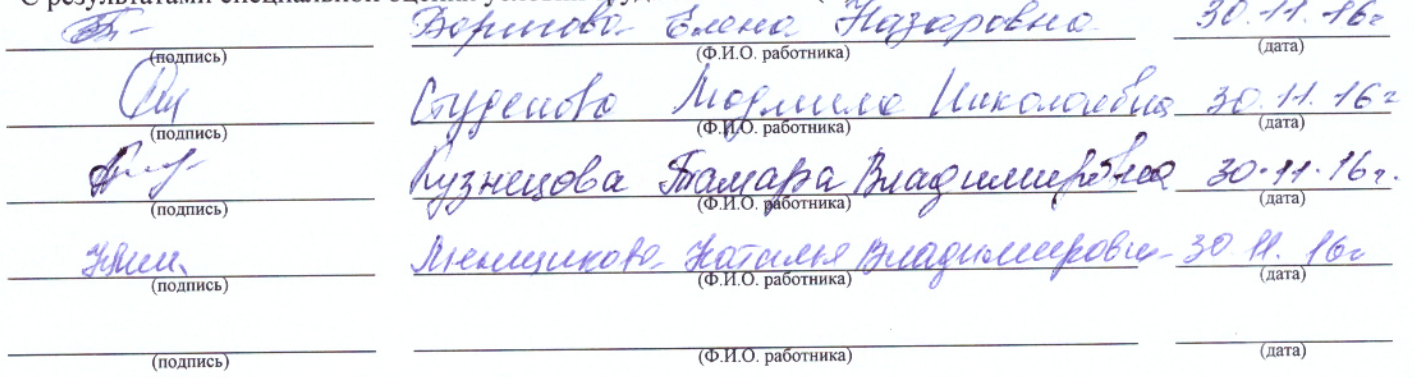 С результатами специальной оценки условий труда
Елена Назаровна 30.11.16г
(подпись) (Ф.И.О. работника) (дата)
Студенова Людмила Николаевна 30.11.16г
(подпись) (Ф.И.О. работника) (дата)
Кузнецова Тамара Владимировна 30.11.16г.
(подпись) (Ф.И.О. работника) (дата)
Менщикова Наталья Владимировн 30.11.16г
(подпись) (Ф.И.О. работника) (дата)
(подпись) (Ф.И.О. работника) (дата)